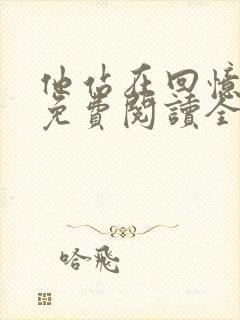 他站在回憶
免費閱讀全
哈飛